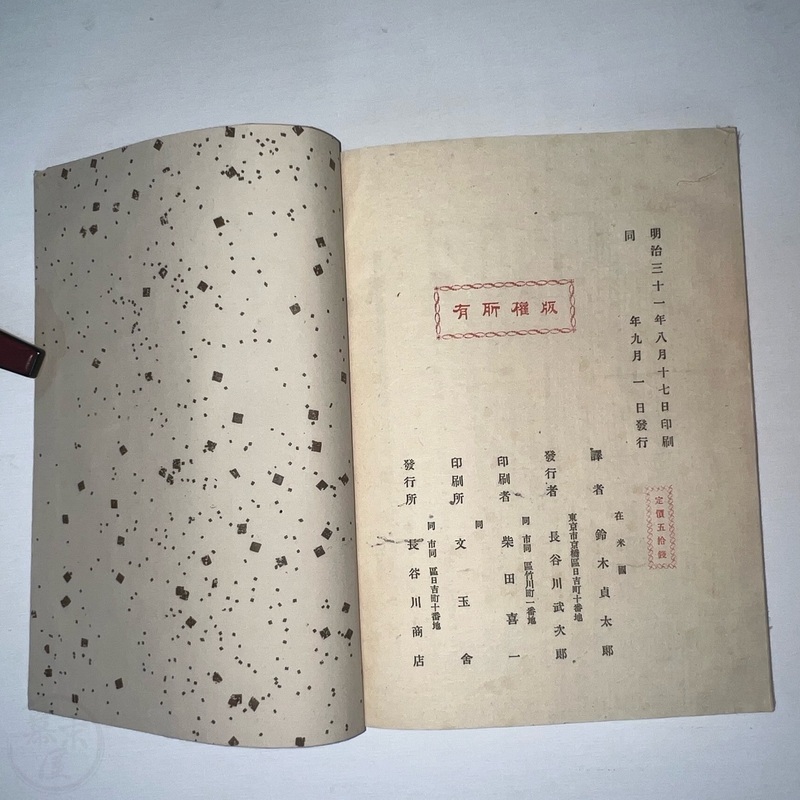 明治三十一年八月十七日印刷
同年九月一日發行
定價五拾錢
版權所有
在米國
譯者 鈴木貞太郎
東京市京橋區日吉町十番地
發行者 長谷川武次郎
同市同區竹川町一番地
印刷者 柴田喜一
同
印刷所 文玉舍
同市同區日吉町十番地
發行所 長谷川商店